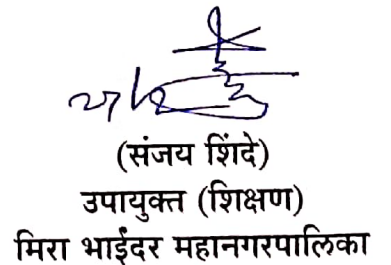 (संजय शिंदे)
उपायुक्त (शिक्षण)
मिरा भाईंदर महानगरपालिका